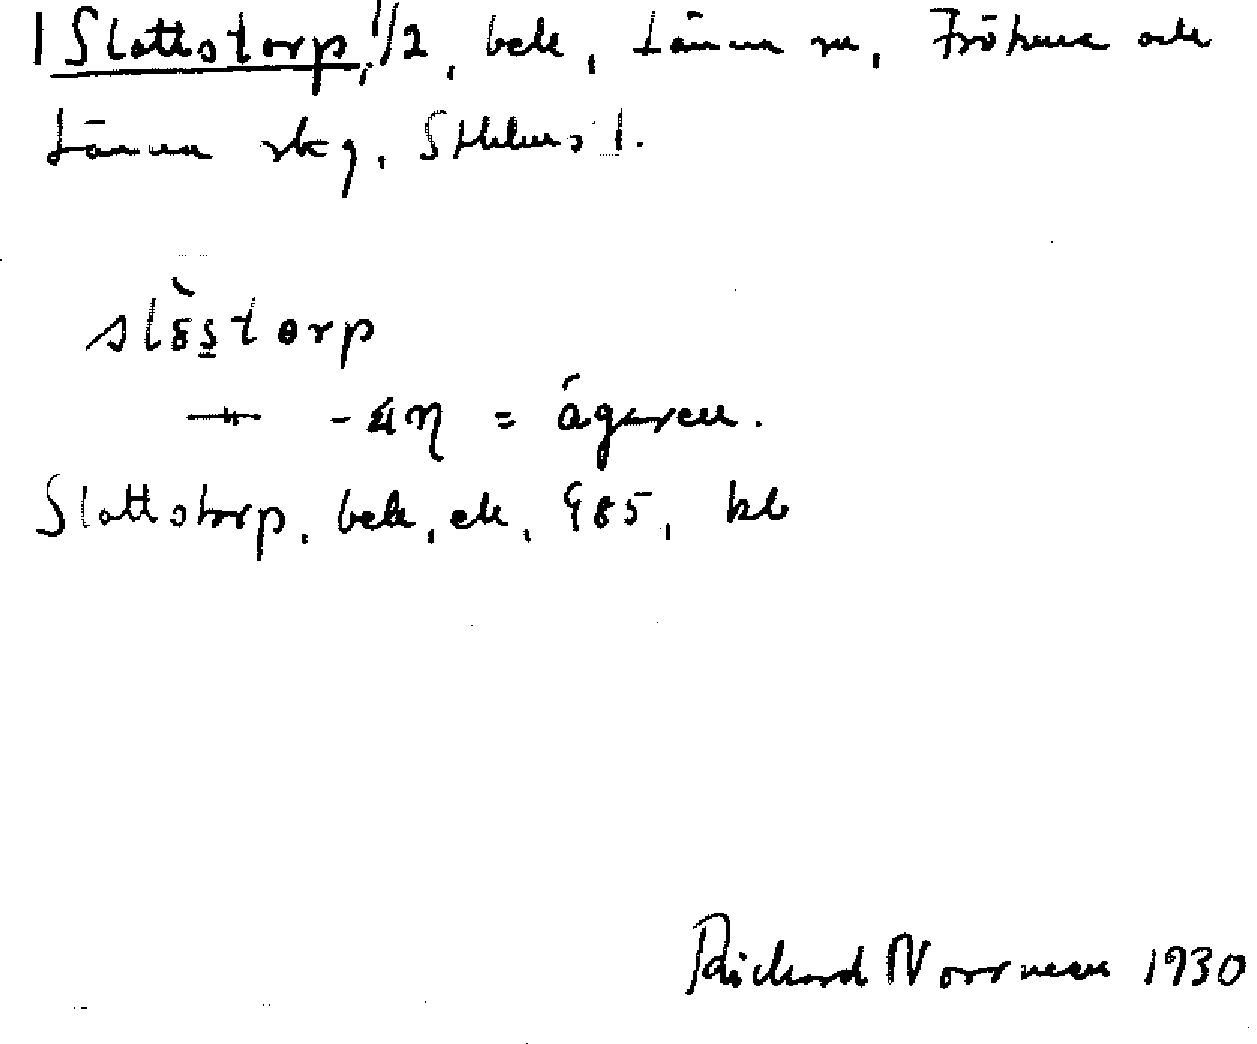 Slottstorp, 1/2, bek, Länna sn, Fröhuna och
Länna skg, Sthlms l.
slòstorp
= ägaren.
Slottstorp, bek, ek, 985, kb
Richard Norrman 1930